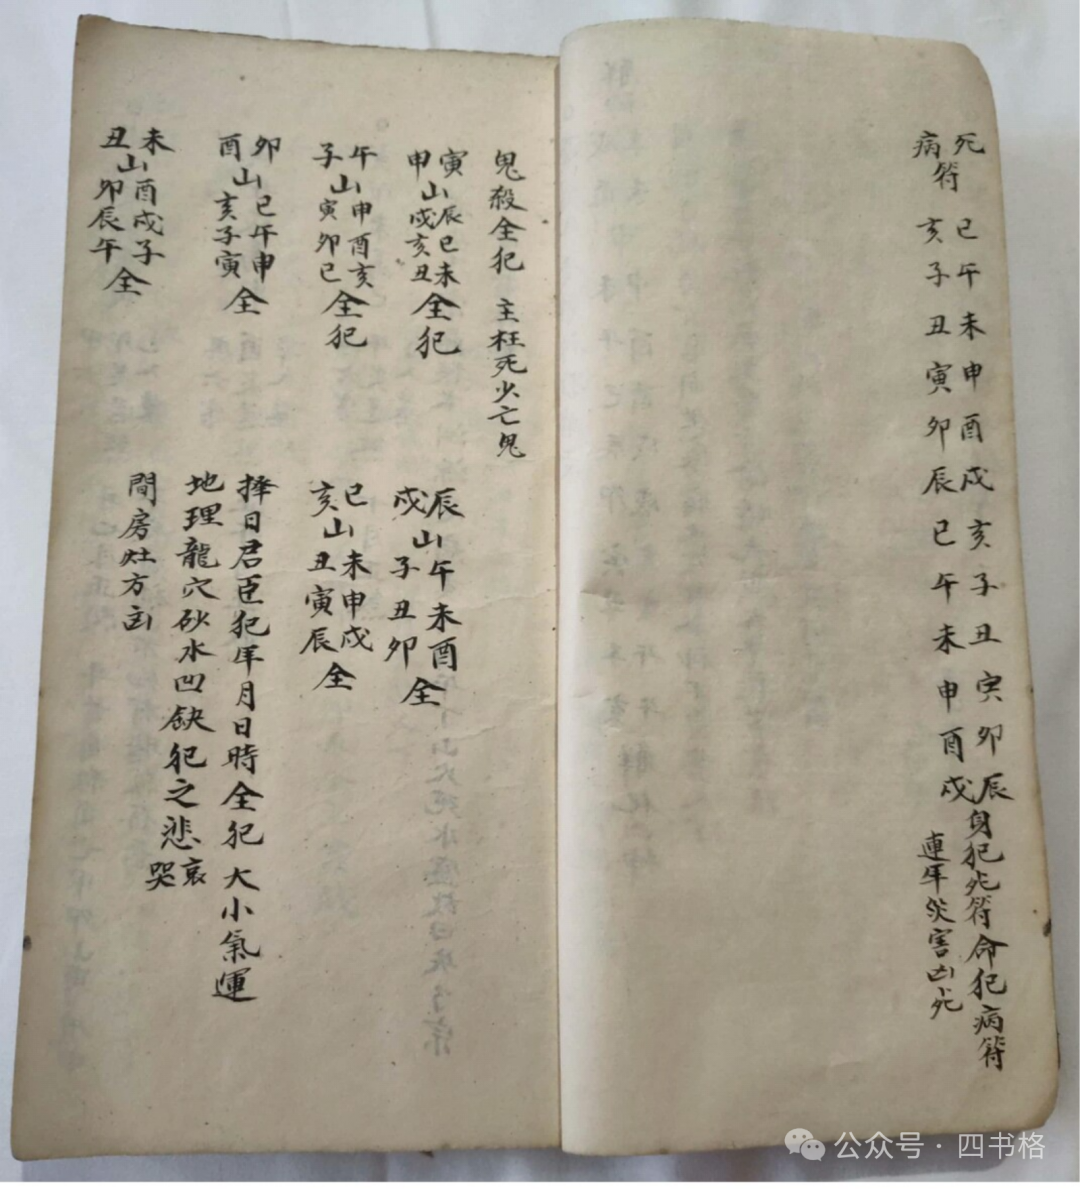 死 巳午未申酉戌亥子丑寅卯辰 身犯死符命犯病符
病符 亥子丑寅卯辰巳午未申酉戌 連年災害凶死
鬼殺全犯 主枉死少亡鬼
寅申山辰巳未戌亥丑全犯
辰戌山午未酉子丑卯全
午子山申酉亥寅卯巳全犯
巳亥山未申戌丑寅辰全
卯酉山巳午申亥子寅全
擇日君臣犯年月日時全犯大小氣運
地理龍穴砂水凹缺犯之悲哀哭
未丑山酉戌子卯辰午全
間房灶方凶
公众号·四书格